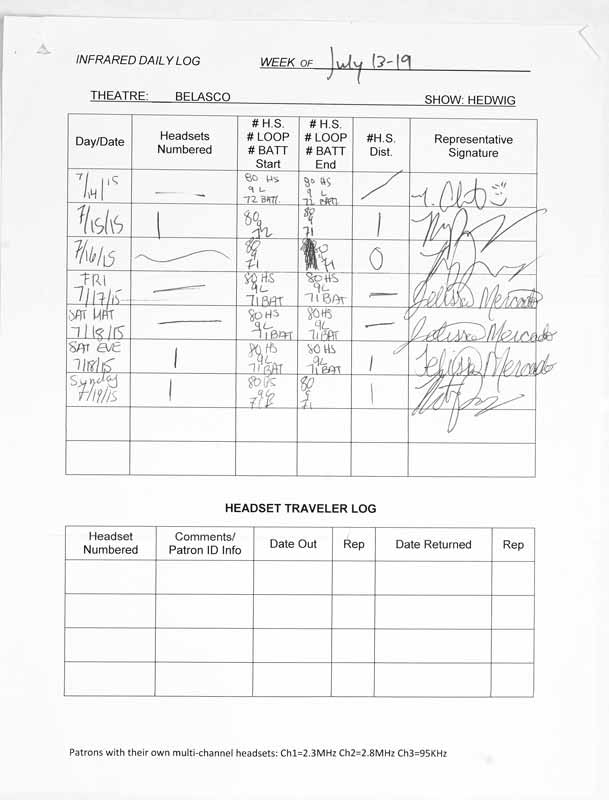 INFRARED DAILY LOG
WEEK OF July 13-19
THEATRE: BELASCO
SHOW: HEDWIG
Day/Date
Headsets
Numbered
# H.S.
# LOOP
# BATT
Start
# H.S.
# LOOP
# BATT
End
#H.S.
Dist.
Representative
Signature
7/14/15
—
80 HS
9 L
72 BATT.
80 HS
9 L
72 BATT
7/15/15
1
80
9
72
80
9
71
1
7/16/15
80
9
71
80
71
0
FRI
7/17/15
—
80 HS
9L
71 BAT
80 HS
9L
71 BAT
—
Jelissa Mercado
SAT MAT
7/18/15
—
80 HS
9L
71 BAT
80 HS
9L
71 BAT
—
Jelissa Mercado
SAT EVE
7/18/15
1
80 HS
9L
71 BAT
80 HS
9L
71 BAT
1
Jelissa Mercado
Sunday
7/19/15
1
80
80
9
71
1
HEADSET TRAVELER LOG
Headset
Numbered
Comments/
Patron ID Info
Date Out
Rep
Date Returned
Rep
Patrons with their own multi-channel headsets: Ch1=2.3MHz Ch2=2.8MHz Ch3=95KHz